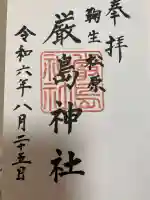 奉拝
鞠生
松原
厳島神社
令和六年八月二十五日